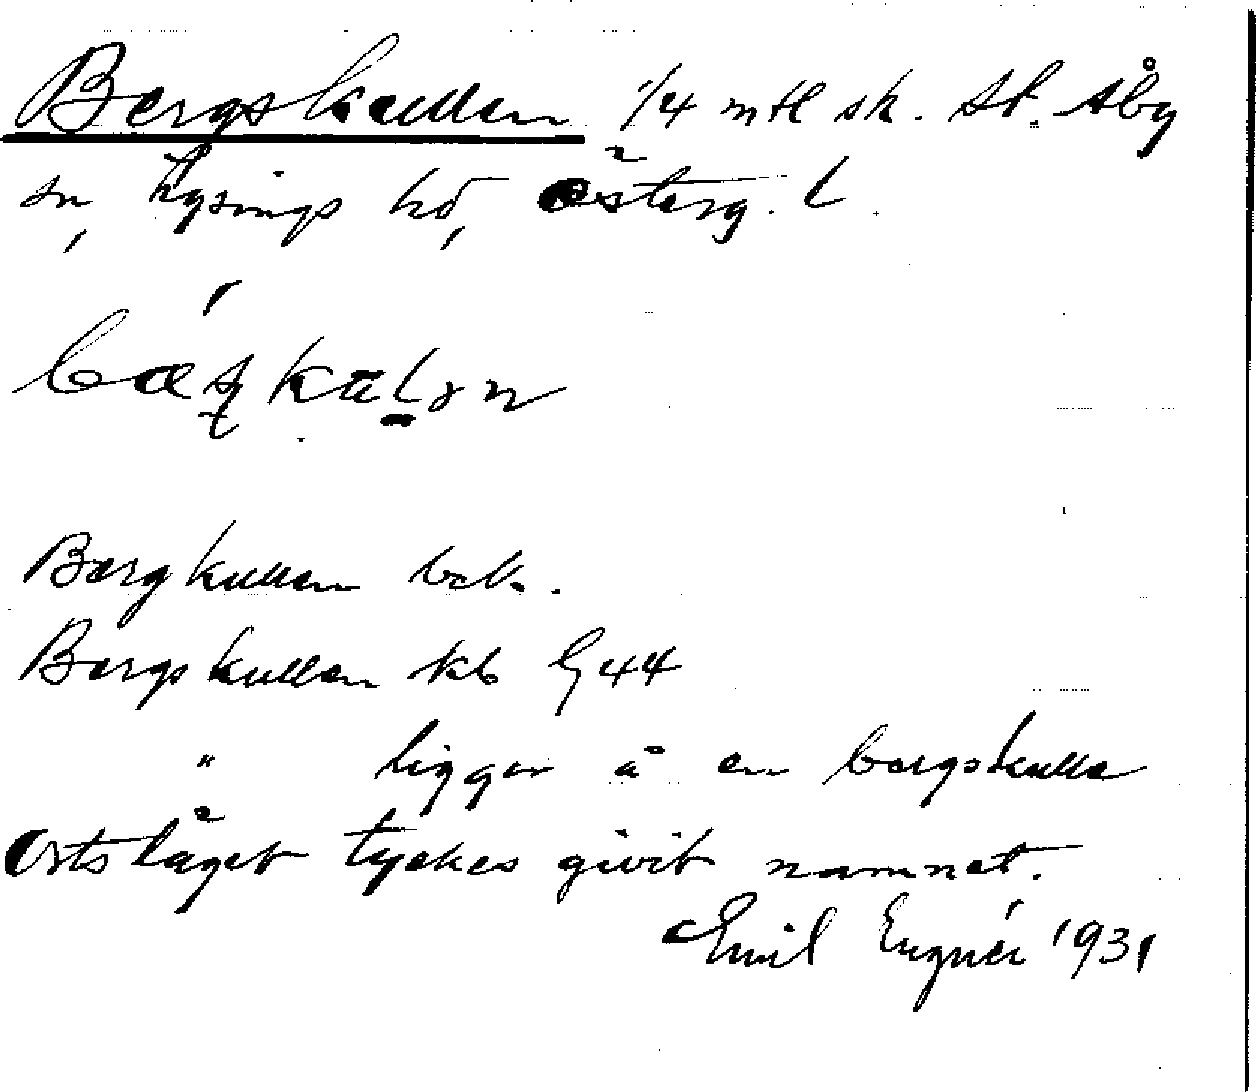 Bergskullen 1/4 mtl sk. St. Åby
sn, Lysings hd, Österg. l.
Bergkullen bek.
Bergskullen kb G 44
" ligger å en bergskulle
Ortsläget tyckes givit namnet.
Emil Eugnér 1931